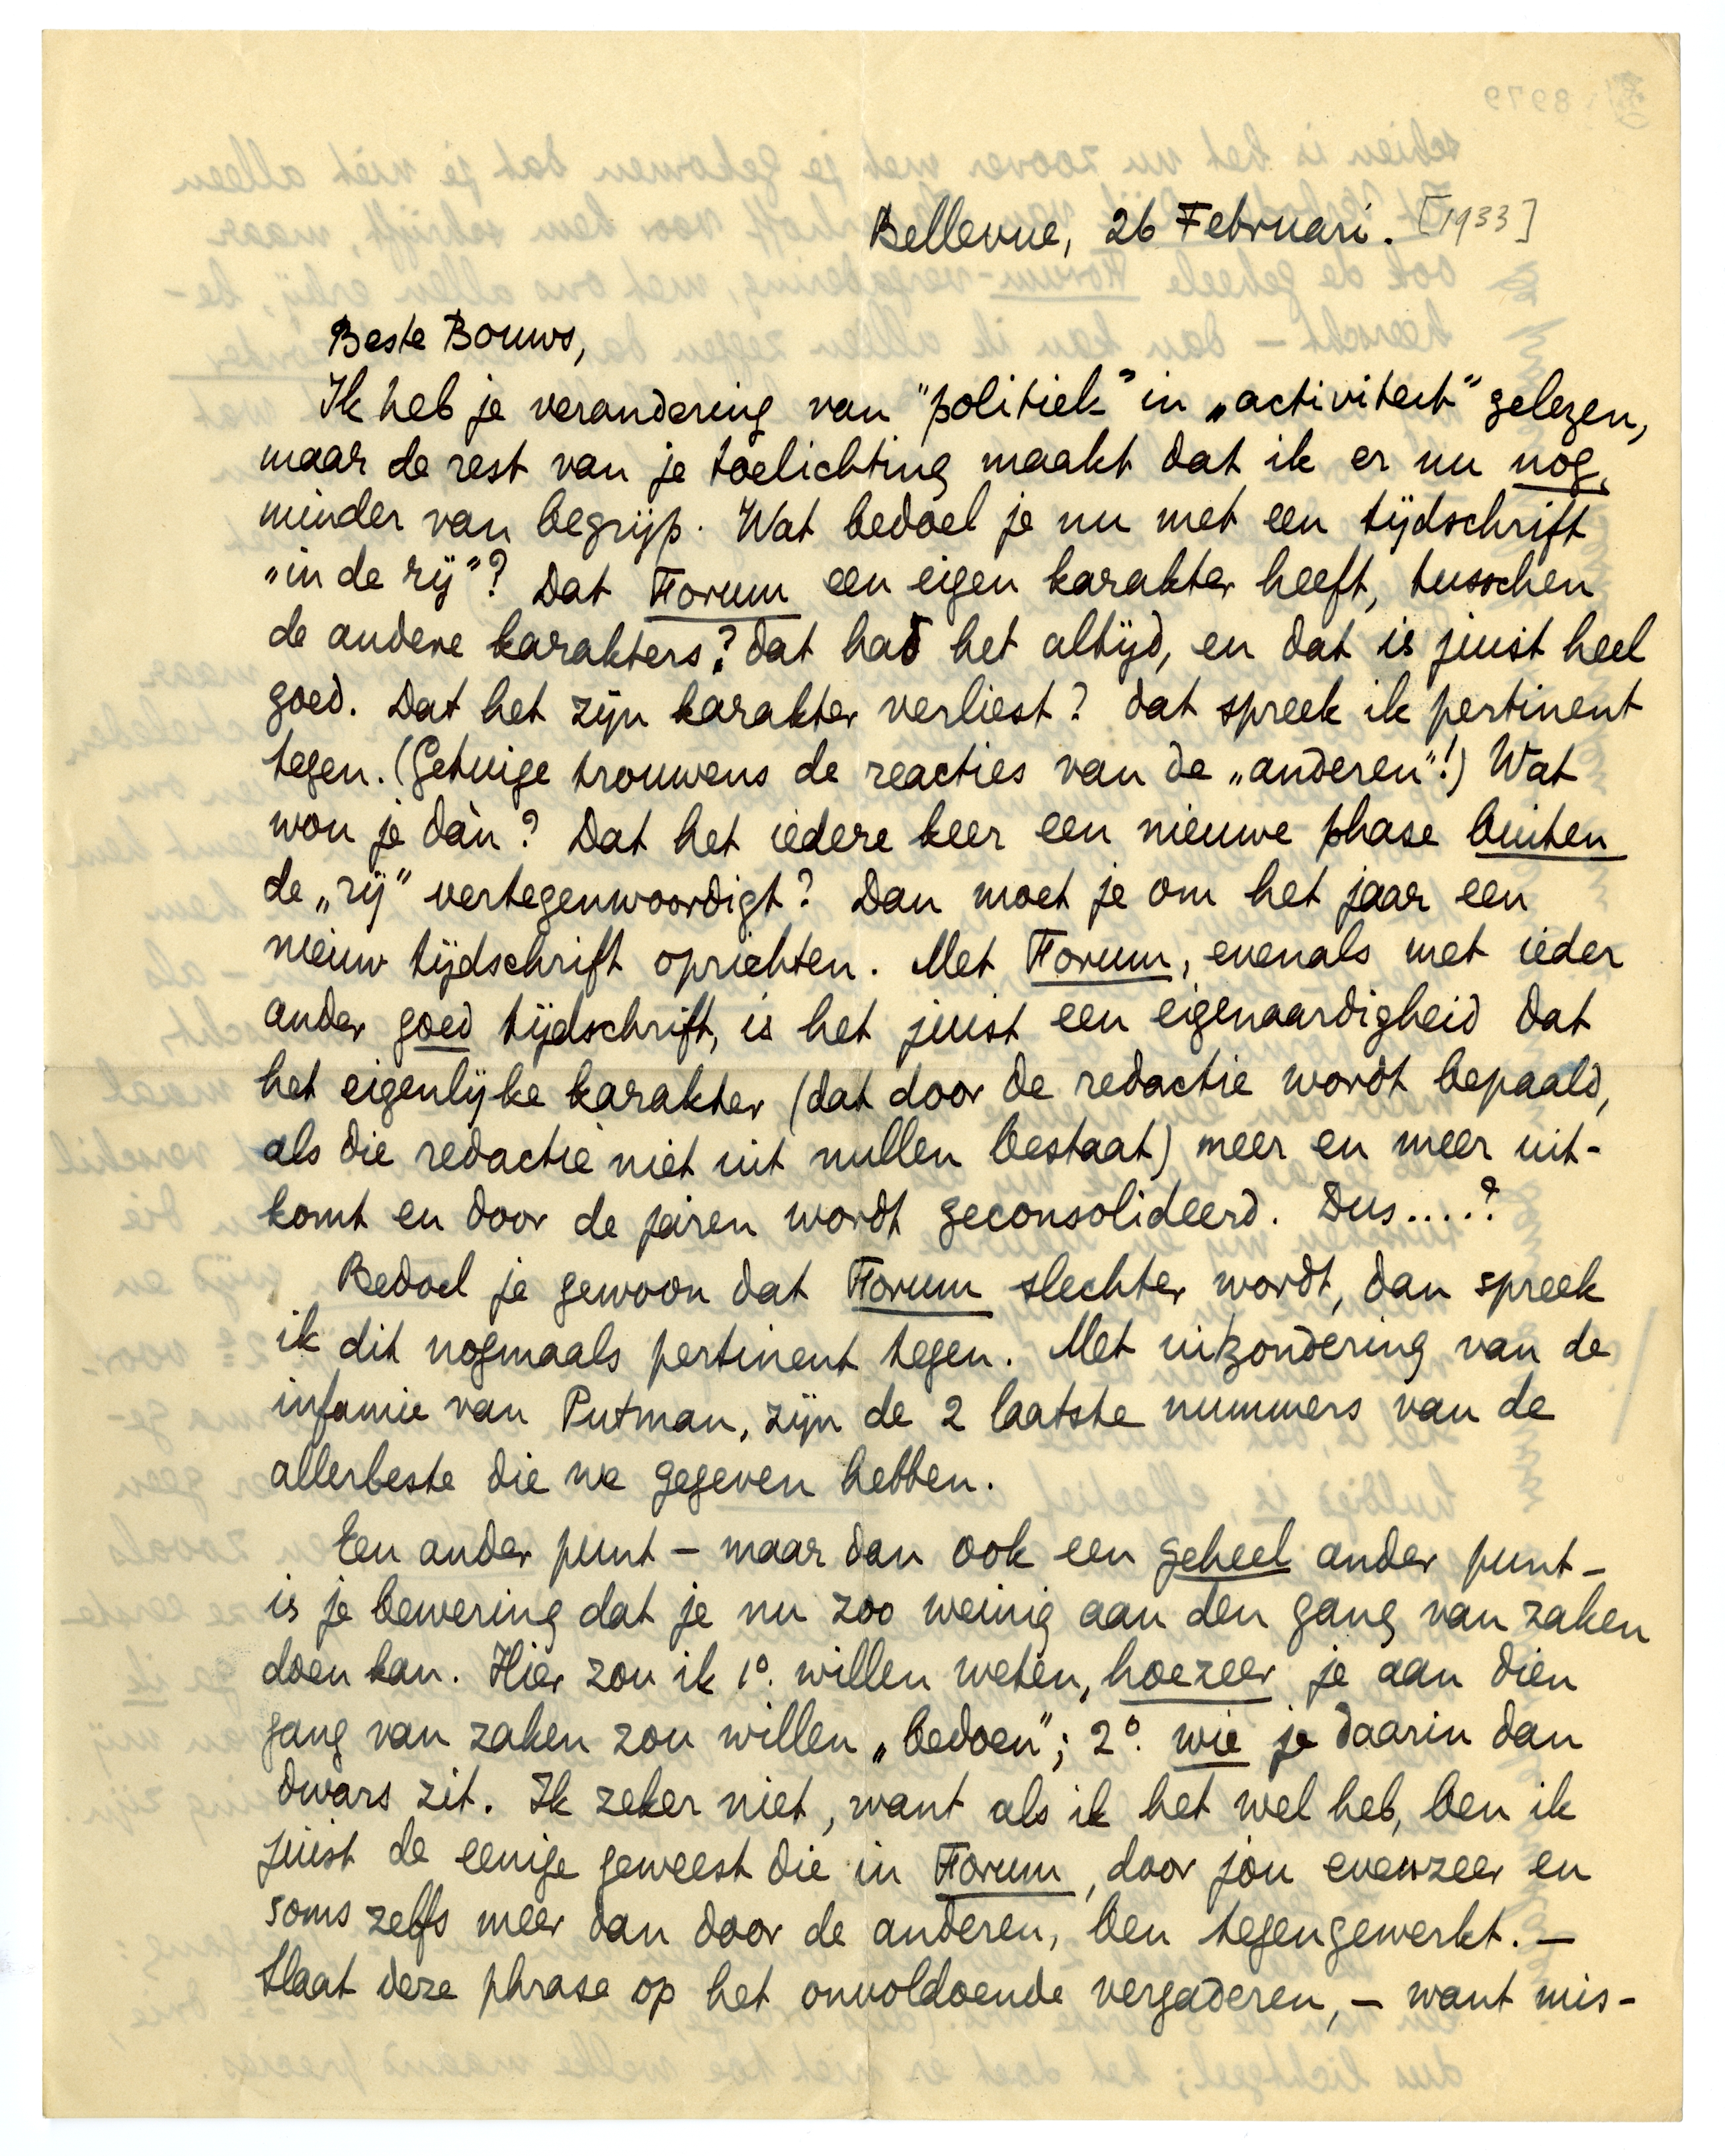 Bellevue, 26 Februari. [1933]
Beste Bouws,
Ik heb je verandering van "politiek" in „activiteit" gelezen,
maar de rest van je toelichting maakt dat ik er nu nog
minder van begrijp. Wat bedoel je nu met een tijdschrift
„in de rij"? Dat Forum een eigen karakter heeft, tusschen
de andere karakters? dat had het altijd, en dat is juist heel
goed. Dat het zijn karakter verliest? dat spreek ik pertinent
tegen. (Getuige trouwens de reacties van de „anderen"!) Wat
wou je dàn? Dat het iedere keer een nieuwe phase buiten
de „rij" vertegenwoordigt? Dan moet je om het jaar een
nieuw tijdschrift oprichten. Met Forum, evenals met ieder
ander goed tijdschrift, is het juist een eigenaardigheid dat
het eigenlijke karakter (dat door de redactie wordt bepaald,
als die redactie niet uit nullen bestaat) meer en meer uit-
komt en door de jaren wordt geconsolideerd. Dus....?
Bedoel je gewoon dat Forum slechter wordt, dan spreek
ik dit nogmaals pertinent tegen. Met uitzondering van de
infamie van Putman, zijn de 2 laatste nummers van de
allerbeste die we gegeven hebben.
Een ander punt – maar dan ook een geheel ander punt –
is je bewering dat je nu zoo weinig aan den gang van zaken
doen kan. Hier zou ik 1°. willen weten, hoezeer je aan dien
gang van zaken zou willen „bedoen"; 2°. wie je daarin dan
dwars zit. Ik zeker niet, want als ik het wel heb, ben ik
juist de eenige geweest die in Forum, door jou evenzeer en
soms zelfs meer dan door de anderen, ben tegengewerkt. –
Slaat deze phrase op het onvoldoende vergaderen, – want mis-